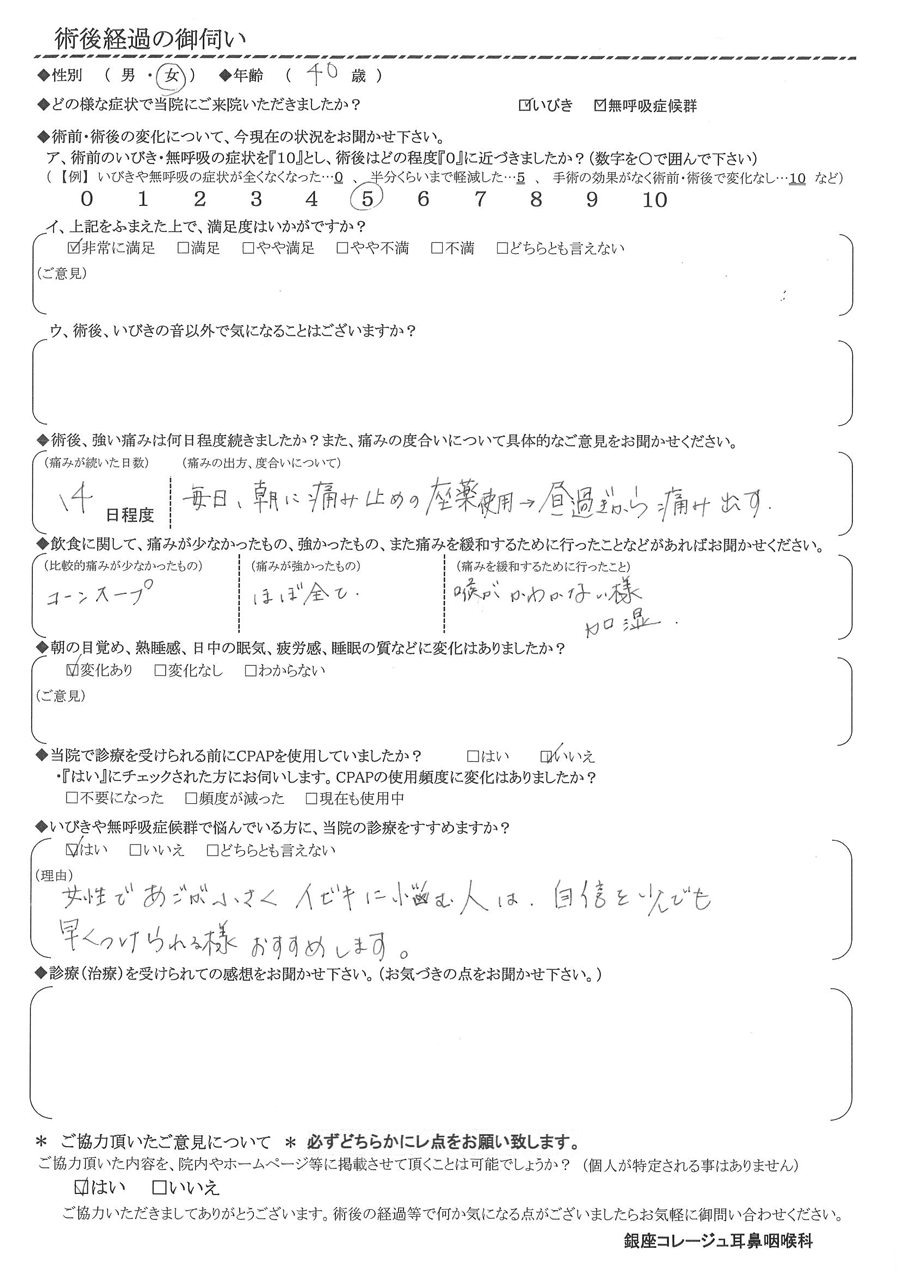 術後経過の御伺い
◆性別 （ 男 ・ 女 ） ◆年齢 （ 40 歳 ）
◆どの様な症状で当院にご来院いただきましたか？ ☑いびき ☑無呼吸症候群
◆術前・術後の変化について、今現在の状況をお聞かせ下さい。
ア、術前のいびき・無呼吸の症状を『10』とし、術後はどの程度『0』に近づきましたか？（数字を〇で囲んで下さい）
（ 【例】 いびきや無呼吸の症状が全くなくなった…0 、 半分くらいまで軽減した…5 、 手術の効果がなく術前・術後で変化なし…10 など）
0 1 2 3 4 5 6 7 8 9 10
イ、上記をふまえた上で、満足度はいかがですか？
☑非常に満足 □満足 □やや満足 □やや不満 □不満 □どちらとも言えない
（ご意見）
ウ、術後、いびきの音以外で気になることはございますか？
◆術後、強い痛みは何日程度続きましたか？また、痛みの度合いについて具体的なご意見をお聞かせください。
（痛みが続いた日数） （痛みの出方、度合いについて）
14 日程度 毎日、朝に痛み止めの座薬使用→昼過ぎから痛み出す.
◆飲食に関して、痛みが少なかったもの、強かったもの、また痛みを緩和するために行ったことなどがあればお聞かせください。
（比較的痛みが少なかったもの） （痛みが強かったもの） （痛みを緩和するために行ったこと）
コーンスープ ほぼ全て. 喉がかわかない様
加湿.
◆朝の目覚め、熟睡感、日中の眠気、疲労感、睡眠の質などに変化はありましたか？
☑変化あり □変化なし □わからない
（ご意見）
◆当院で診療を受けられる前にCPAPを使用していましたか？ □はい ☑いいえ
・『はい』にチェックされた方にお伺いします。CPAPの使用頻度に変化はありましたか？
□不要になった □頻度が減った □現在も使用中
◆いびきや無呼吸症候群で悩んでいる方に、当院の診療をすすめますか？
☑はい □いいえ □どちらとも言えない
（理由）
女性であごが小さくイビキに悩む人は、自信を少しでも
早くつけられる様おすすめします。
◆診療（治療）を受けられての感想をお聞かせ下さい。（お気づきの点をお聞かせ下さい。）
＊ ご協力頂いたご意見について ＊ 必ずどちらかにレ点をお願い致します。
ご協力頂いた内容を、院内やホームページ等に掲載させて頂くことは可能でしょうか？ （個人が特定される事はありません）
☑はい □いいえ
ご協力いただきましてありがとうございます。術後の経過等で何か気になる点がございましたらお気軽に御問い合わせください。
銀座コレージュ耳鼻咽喉科